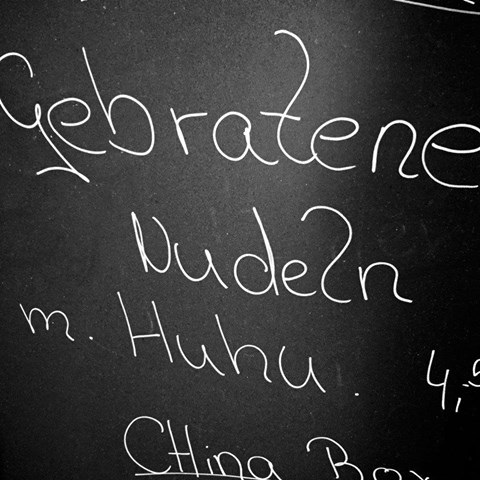 Gebratene
Nudeln
m. Huhn.
4,5
CHina Box